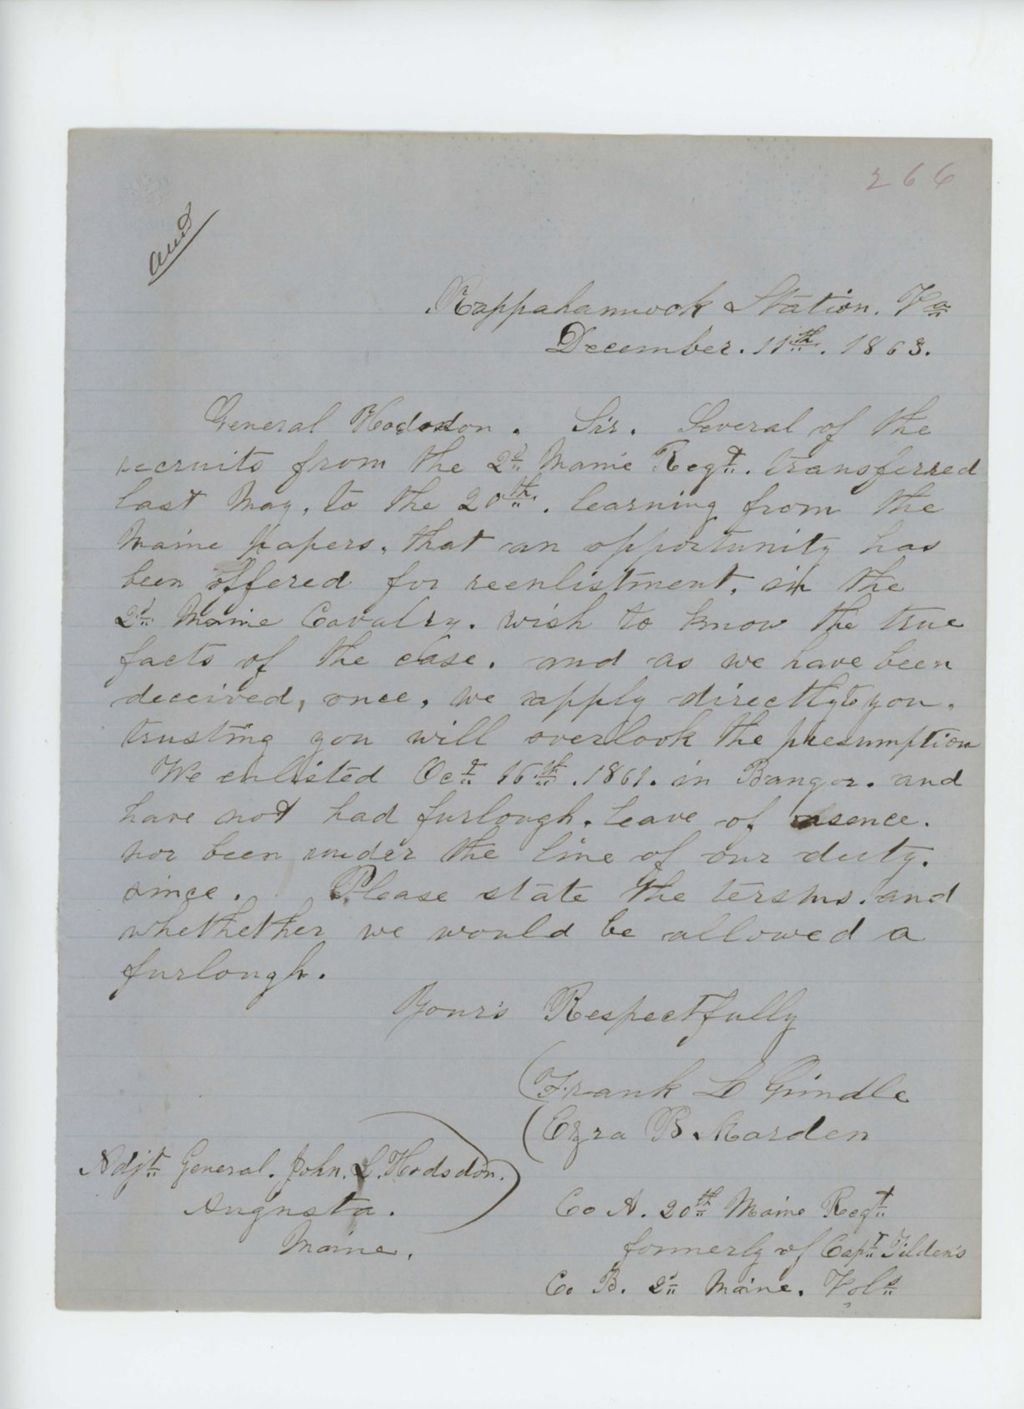 266
and
Rappahannock Station. Va
December. 11th. 1863.
General Hodsdon. Sir. Several of the
recruits from the 2d Maine Regt. transferred
last May, to the 20th. learning from the
Maine papers, that an opportunity has
been offered for reenlistment, in the
2d Maine Cavalry. wish to know the true
facts of the case. and as we have been
deceived, once, we apply directly to you.
trusting you will overlook the presumption
We enlisted Oct 16th. 1861. in Bangor. and
have not had furlough. leave of absence.
nor been under the line of our duty.
since. Please state the terms. and
whethether we would be allowed a
furlough.
Your's Respectfully
Frank L Grindle
Ezra B. Marden
Adjt General. John. L. Hodsdon.
Augusta.
Maine.
Co A. 20th Maine Regt
formerly of Capt Tilden's
Co B. 2d Maine. Vols